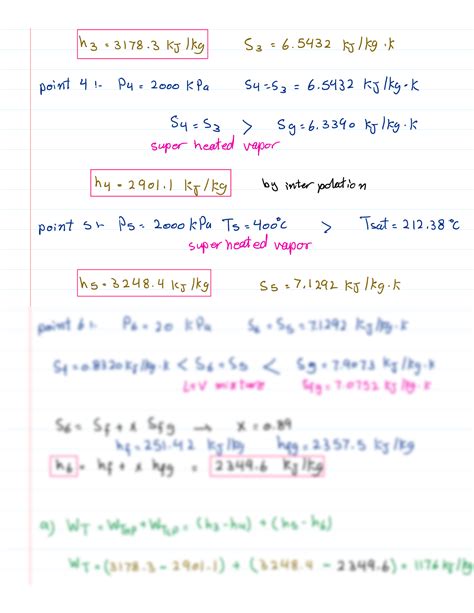 h3 = 3178.3 kJ/kg S3 = 6.5432 kJ/kg.k
point 4 :- P4 = 2000 kPa S4 = S3 = 6.5432 kJ/kg.k
S4 = S3 > Sg = 6.3390 kJ/kg.k
super heated vapor
h4 = 2901.1 kJ/kg by interpolation
point 5 :- P5 = 2000 kPa T5 = 400°C > Tsat = 212.38°C
super heated vapor
h5 = 3248.4 kJ/kg S5 = 7.1292 kJ/kg.k
point 6 :- P6 = 20 kPa S6 = S5 = 7.1292 kJ/kg.k
Sf = 0.8320 kJ/kg.k < S6 = S5 < Sg = 7.9073 kJ/kg.k
L+V mixture Sfg = 7.0752 kJ/kg.k
S6 = Sf + x Sfg → x = 0.89
hf = 251.42 kJ/kg hfg = 2357.5 kJ/kg
h6 = hf + x hfg = 2349.6 kJ/kg
a) WT = + = (h3-h4) + (h5-h6)
WT = (3178.3 - 2901.1) + (3248.4 - 2349.6) = 1176 kJ/kg